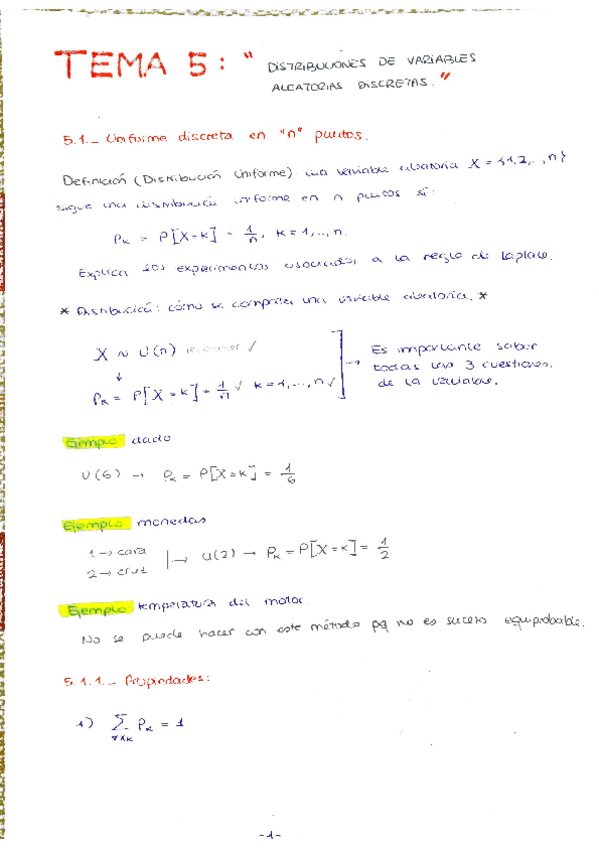 TEMA 5: " DISTRIBUCIONES DE VARIABLES
ALEATORIAS DISCRETAS. "
5.1.- Uniforme discreta en "n" puntos.
Definición (Distribución Uniforme) una variable aleatoria X = {1,2,..,n}
sigue una distribución uniforme en n puntos si:
Pk = P[X=k] = 1/n, k=1,..,n.
Explica los experimentos asociados a la regla de Laplace.
* Distribución: cómo se comporta una variable aleatoria. *
X ~ U(n) reconocer ✓
↓
Pk = P[X=k] = 1/n ✓ k=1,...,n ✓
→ Es importante saber
todas las 3 cuestiones
de la variable.
Ejemplo dado
U(6) → Pk = P[X=k] = 1/6
Ejemplo monedas
1 → cara
2 → cruz
|→ U(2) → Pk = P[X=k] = 1/2
Ejemplo temperatura del motor.
No se puede hacer con este método pq no es suceso equiprobable.
5.1.1.- Propiedades:
1) ∑ Pk = 1
∀xk
-1-